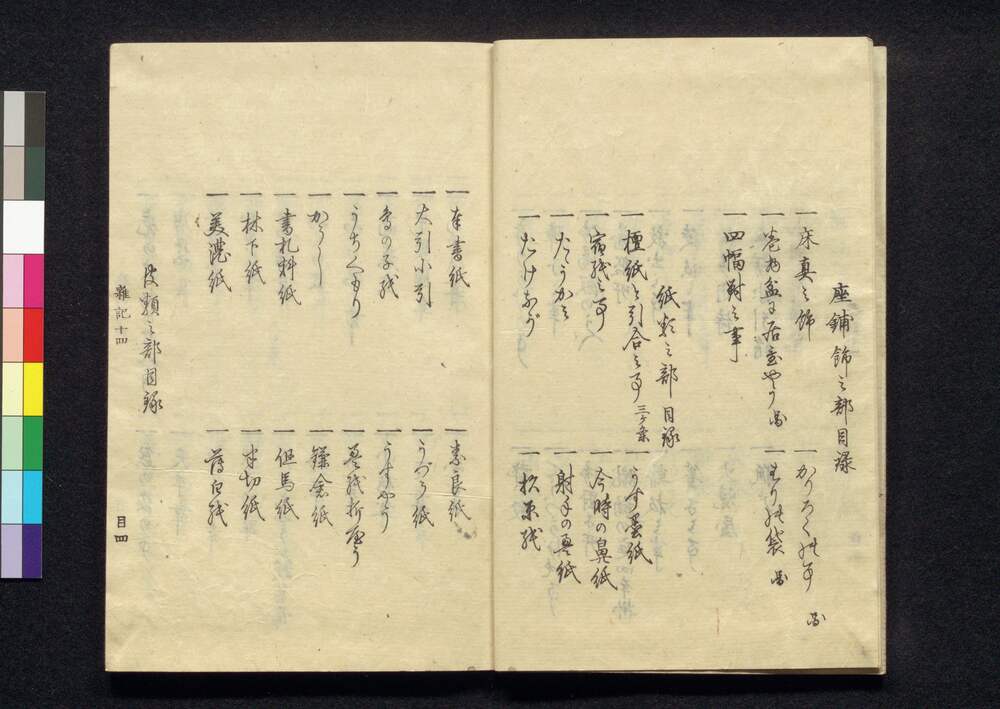 座鋪飾之部目録
一床真之飾
一かりろくの事 図
一巻物盆に居置やう 図
一匂の袋 図
一四幅対之事
紙類之部目録
一檀紙と引合之事 三ケ条
一うす墨紙
一宿紙之事
一今時の鼻紙
一たたうかみ
一射手の畳紙
一たけなが
一松原紙
一奉書紙
一奈良紙
一大引小引
一うづら紙
一鳥の子紙
一うすやう
一うちくもり
一畳紙折やう
一からかみ
一鎌倉紙
一書札料紙
一但馬紙
一林下紙
一半切紙
一美濃紙
一薄白紙
皮類之部目録
雑記十四
目四